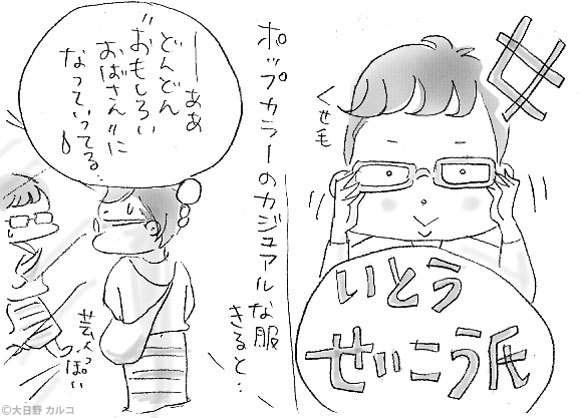 女
くせ毛
いとう
せいこう氏
ポップカラーのカジュアルな服
きると…
―ああ
どんどん
"おもしろい
おばさん"に
なっていってる…
芸人っぽい
©大日野 カルコ